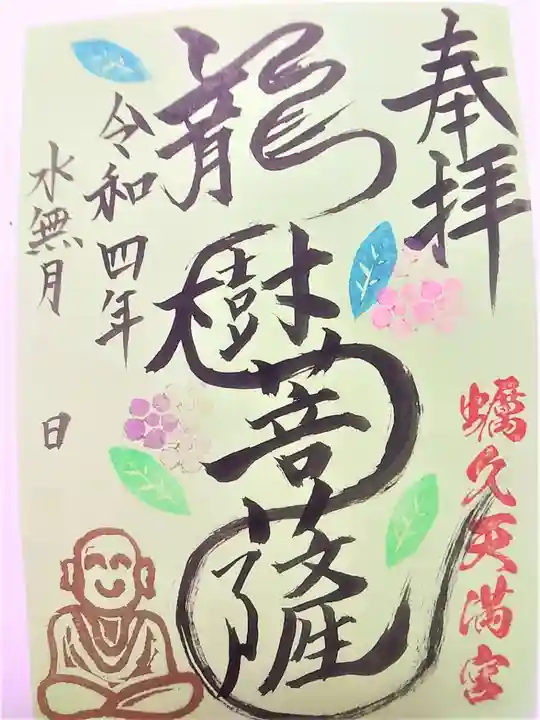 奉拝
蠣久天満宮
龍樹菩薩
令和四年
水無月 日